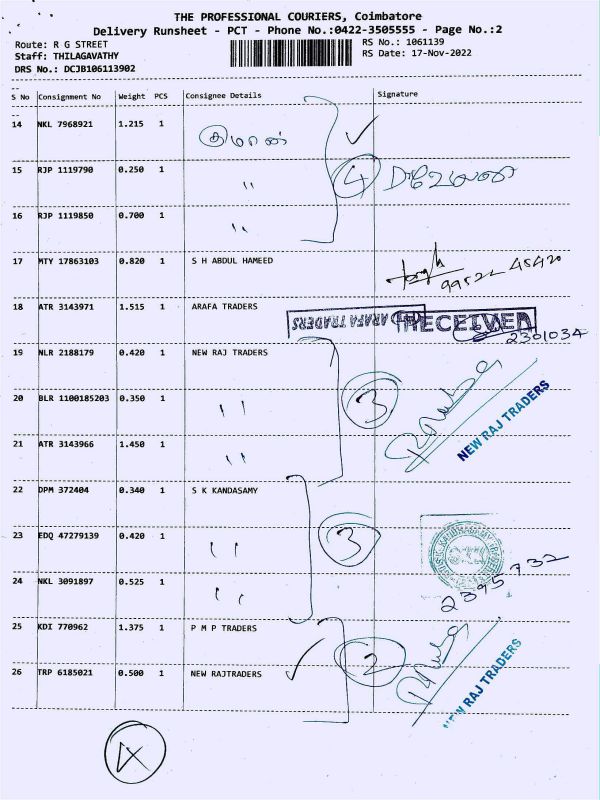 THE PROFESSIONAL COURIERS, Coimbatore
Delivery Runsheet - PCT - Phone No.:0422-3505555 - Page No.:2
Route: R G STREET RS No.: 1061139
Staff: THILAGAVATHY RS Date: 17-Nov-2022
DRS No.: DCJB106113902
S No Consignment No Weight PCS Consignee Details Signature
14 NKL 7968921 1.215 1 குமரன்
15 RJP 1119790 0.250 1 " 4
16 RJP 1119850 0.700 1 "
17 MTY 17863103 0.820 1 S H ABDUL HAMEED
99522 45420
18 ATR 3143971 1.515 1 ARAFA TRADERS ARAFA TRADERS RECEIVED
2301034
19 NLR 2188179 0.420 1 NEW RAJ TRADERS
20 BLR 1100185203 0.350 1 " 3 NEW RAJ TRADERS
21 ATR 3143966 1.450 1 "
22 DPM 372404 0.340 1 S K KANDASAMY
23 EDQ 47279139 0.420 1 " 3
24 NKL 3091897 0.525 1 " 2395732
25 KDI 770962 1.375 1 P M P TRADERS
26 TRP 6185021 0.500 1 NEW RAJTRADERS 2 NEW RAJ TRADERS